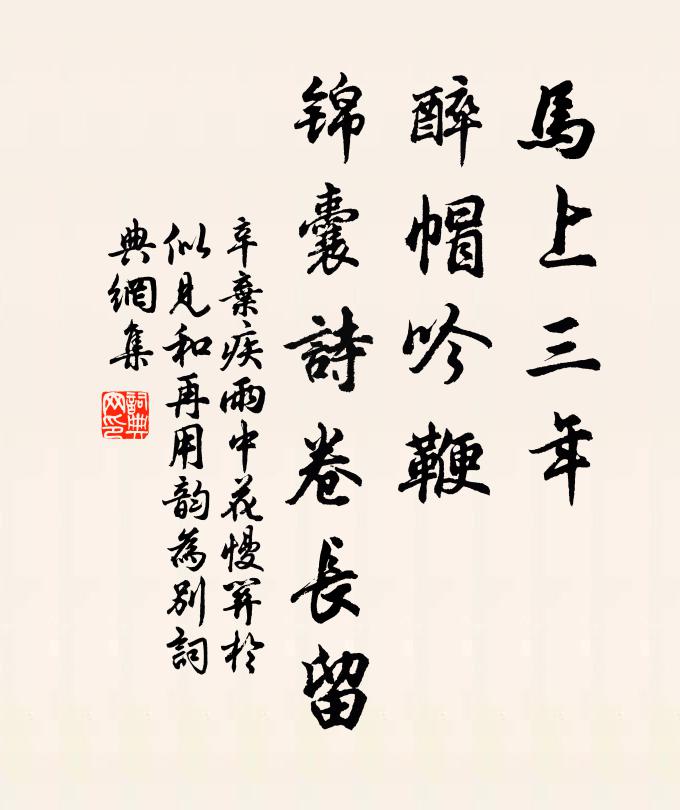 馬上三年
醉帽吟鞭
錦囊詩卷長留
辛棄疾雨中花慢登於
似見和再用韵為別詞
典網集
詞典
网印